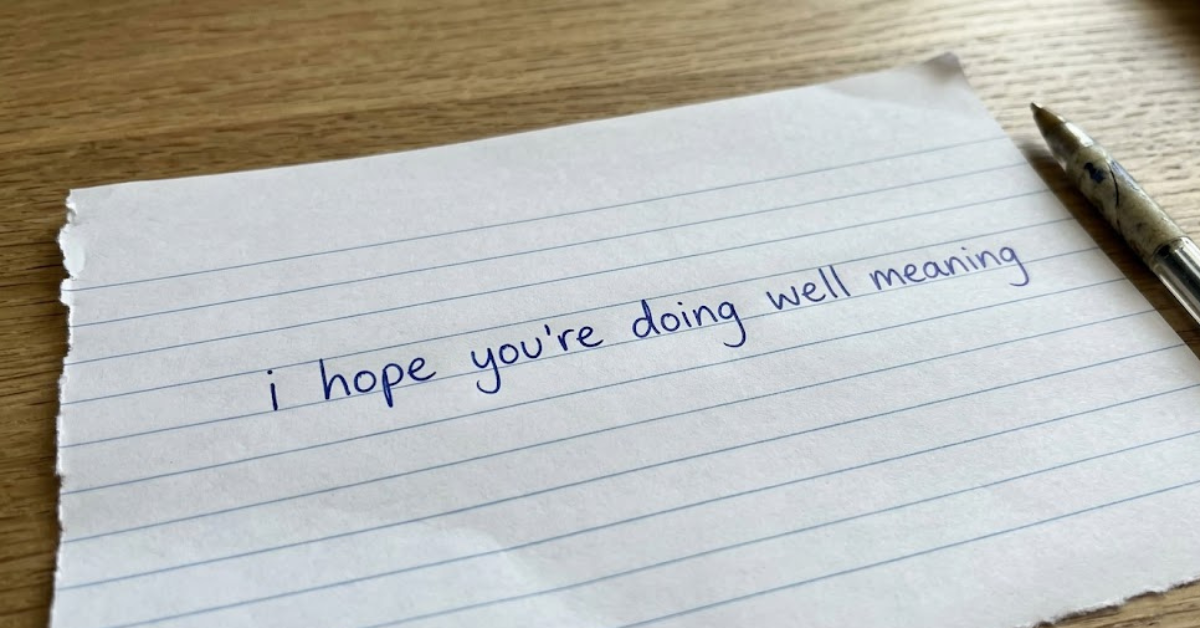 i hope you're doing well meaning